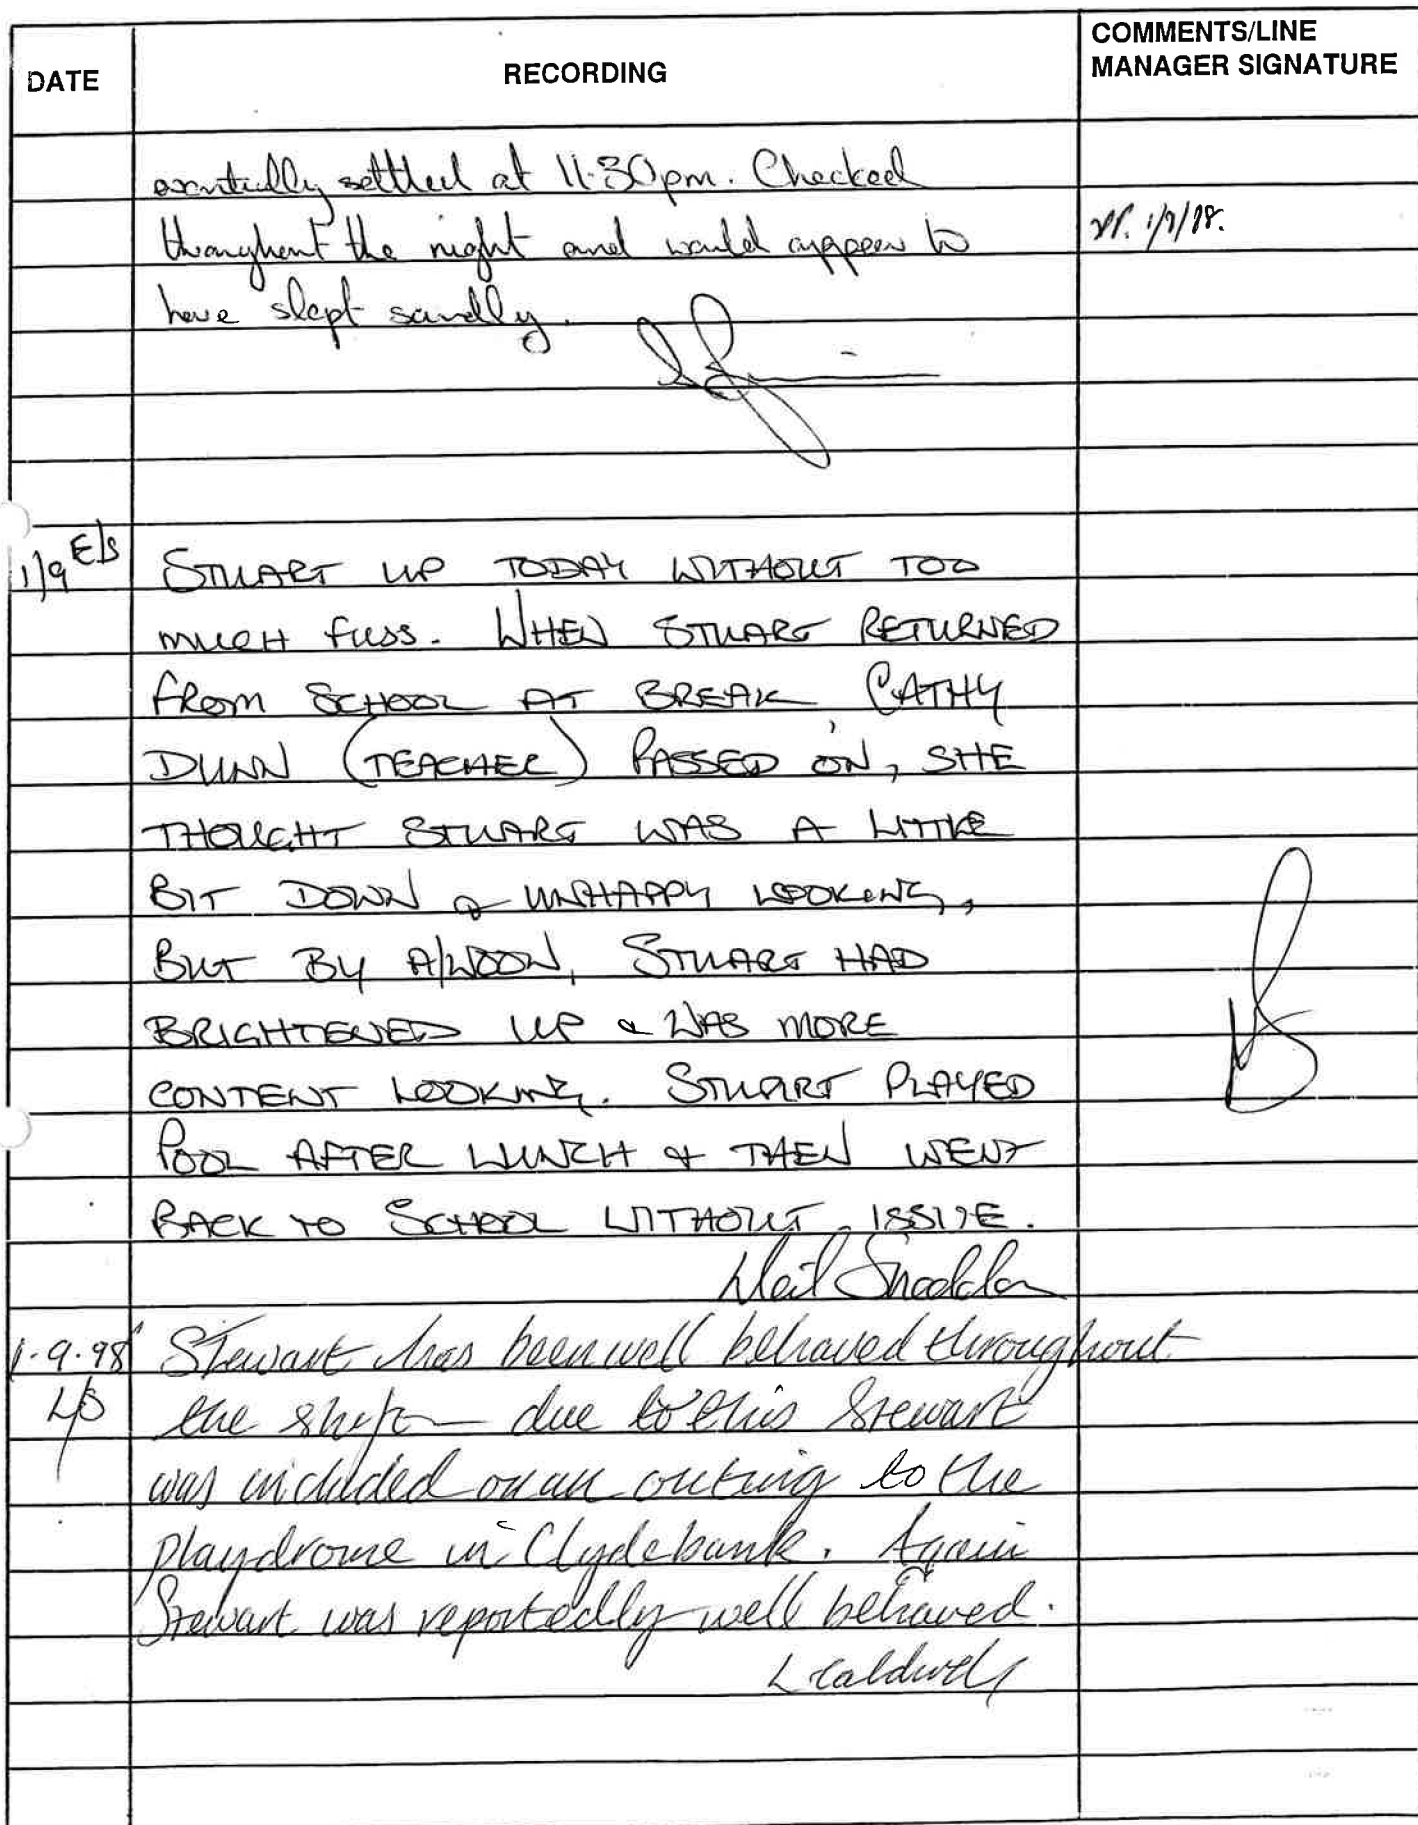 DATE
RECORDING
COMMENTS/LINE
MANAGER SIGNATURE
eventually settled at 11.30pm. Checked
throughout the night and would appear to
1/9/98.
have slept soundly.
1/9 E/S
STUART UP TODAY WITHOUT TOO
MUCH FUSS. WHEN STUART RETURNED
FROM SCHOOL AT BREAK, CATHY
DUNN (TEACHER) PASSED ON, SHE
THOUGHT STUART WAS A LITTLE
BIT DOWN & UNHAPPY LOOKING,
BUT BY A/NOON, STUART HAD
BRIGHTENED UP & WAS MORE
CONTENT LOOKING. STUART PLAYED
POOL AFTER LUNCH & THEN WENT
BACK TO SCHOOL WITHOUT ISSUE.
Neil Sneddon
1.9.98 Stewart has been well behaved throughout
L/S the shift — due to this Stewart
was included on an outing to the
playdrome in Clydebank. Again
Stewart was reportedly well behaved.
L Caldwell